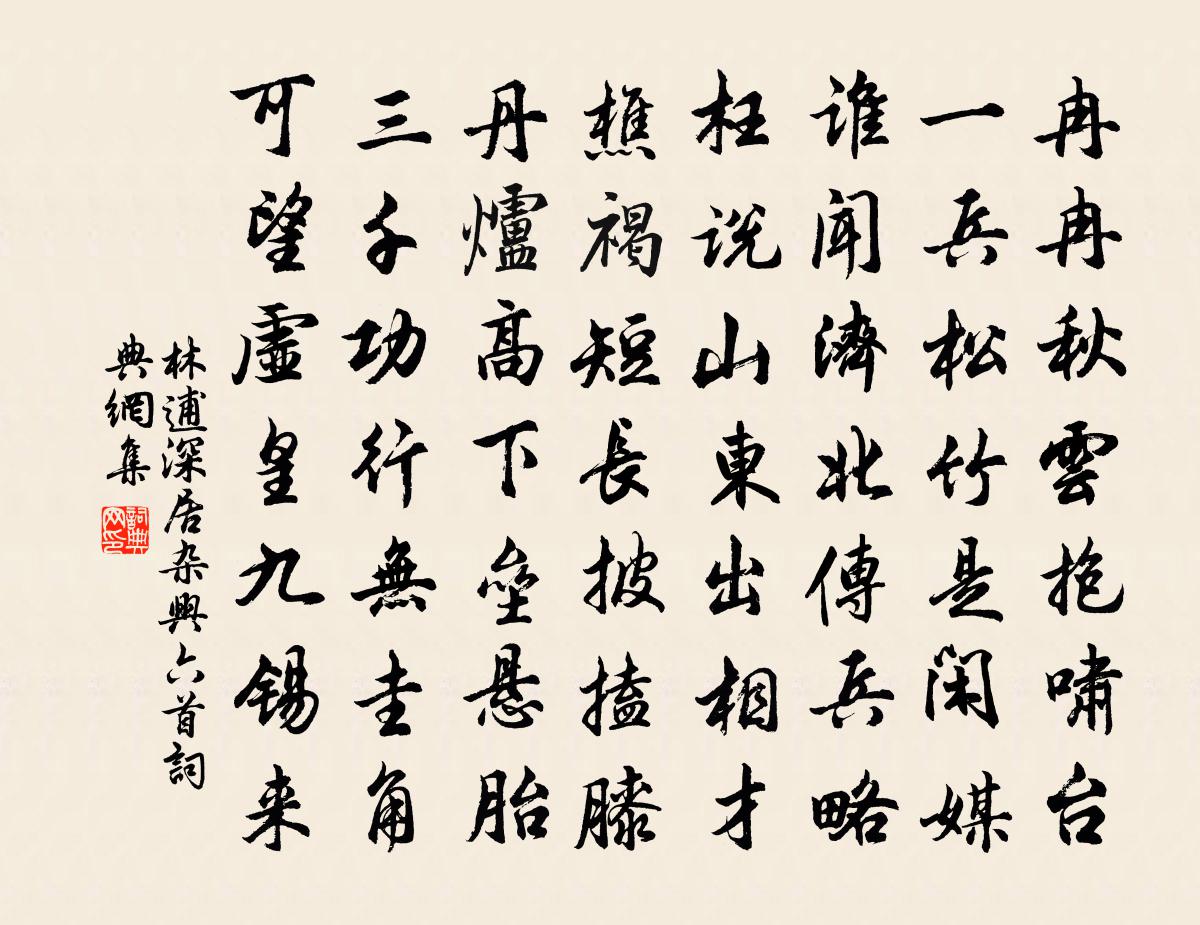 冉冉秋雲抱嘯台
一兵松竹是閑媒
谁聞濟北傳兵略
枉说山東出相才
樵褐短長披搕膝
丹爐高下垒悬胎
三千功行無圭角
可望虛皇九锡来
林逋深居杂興六首詞
典網集
詞典
网印